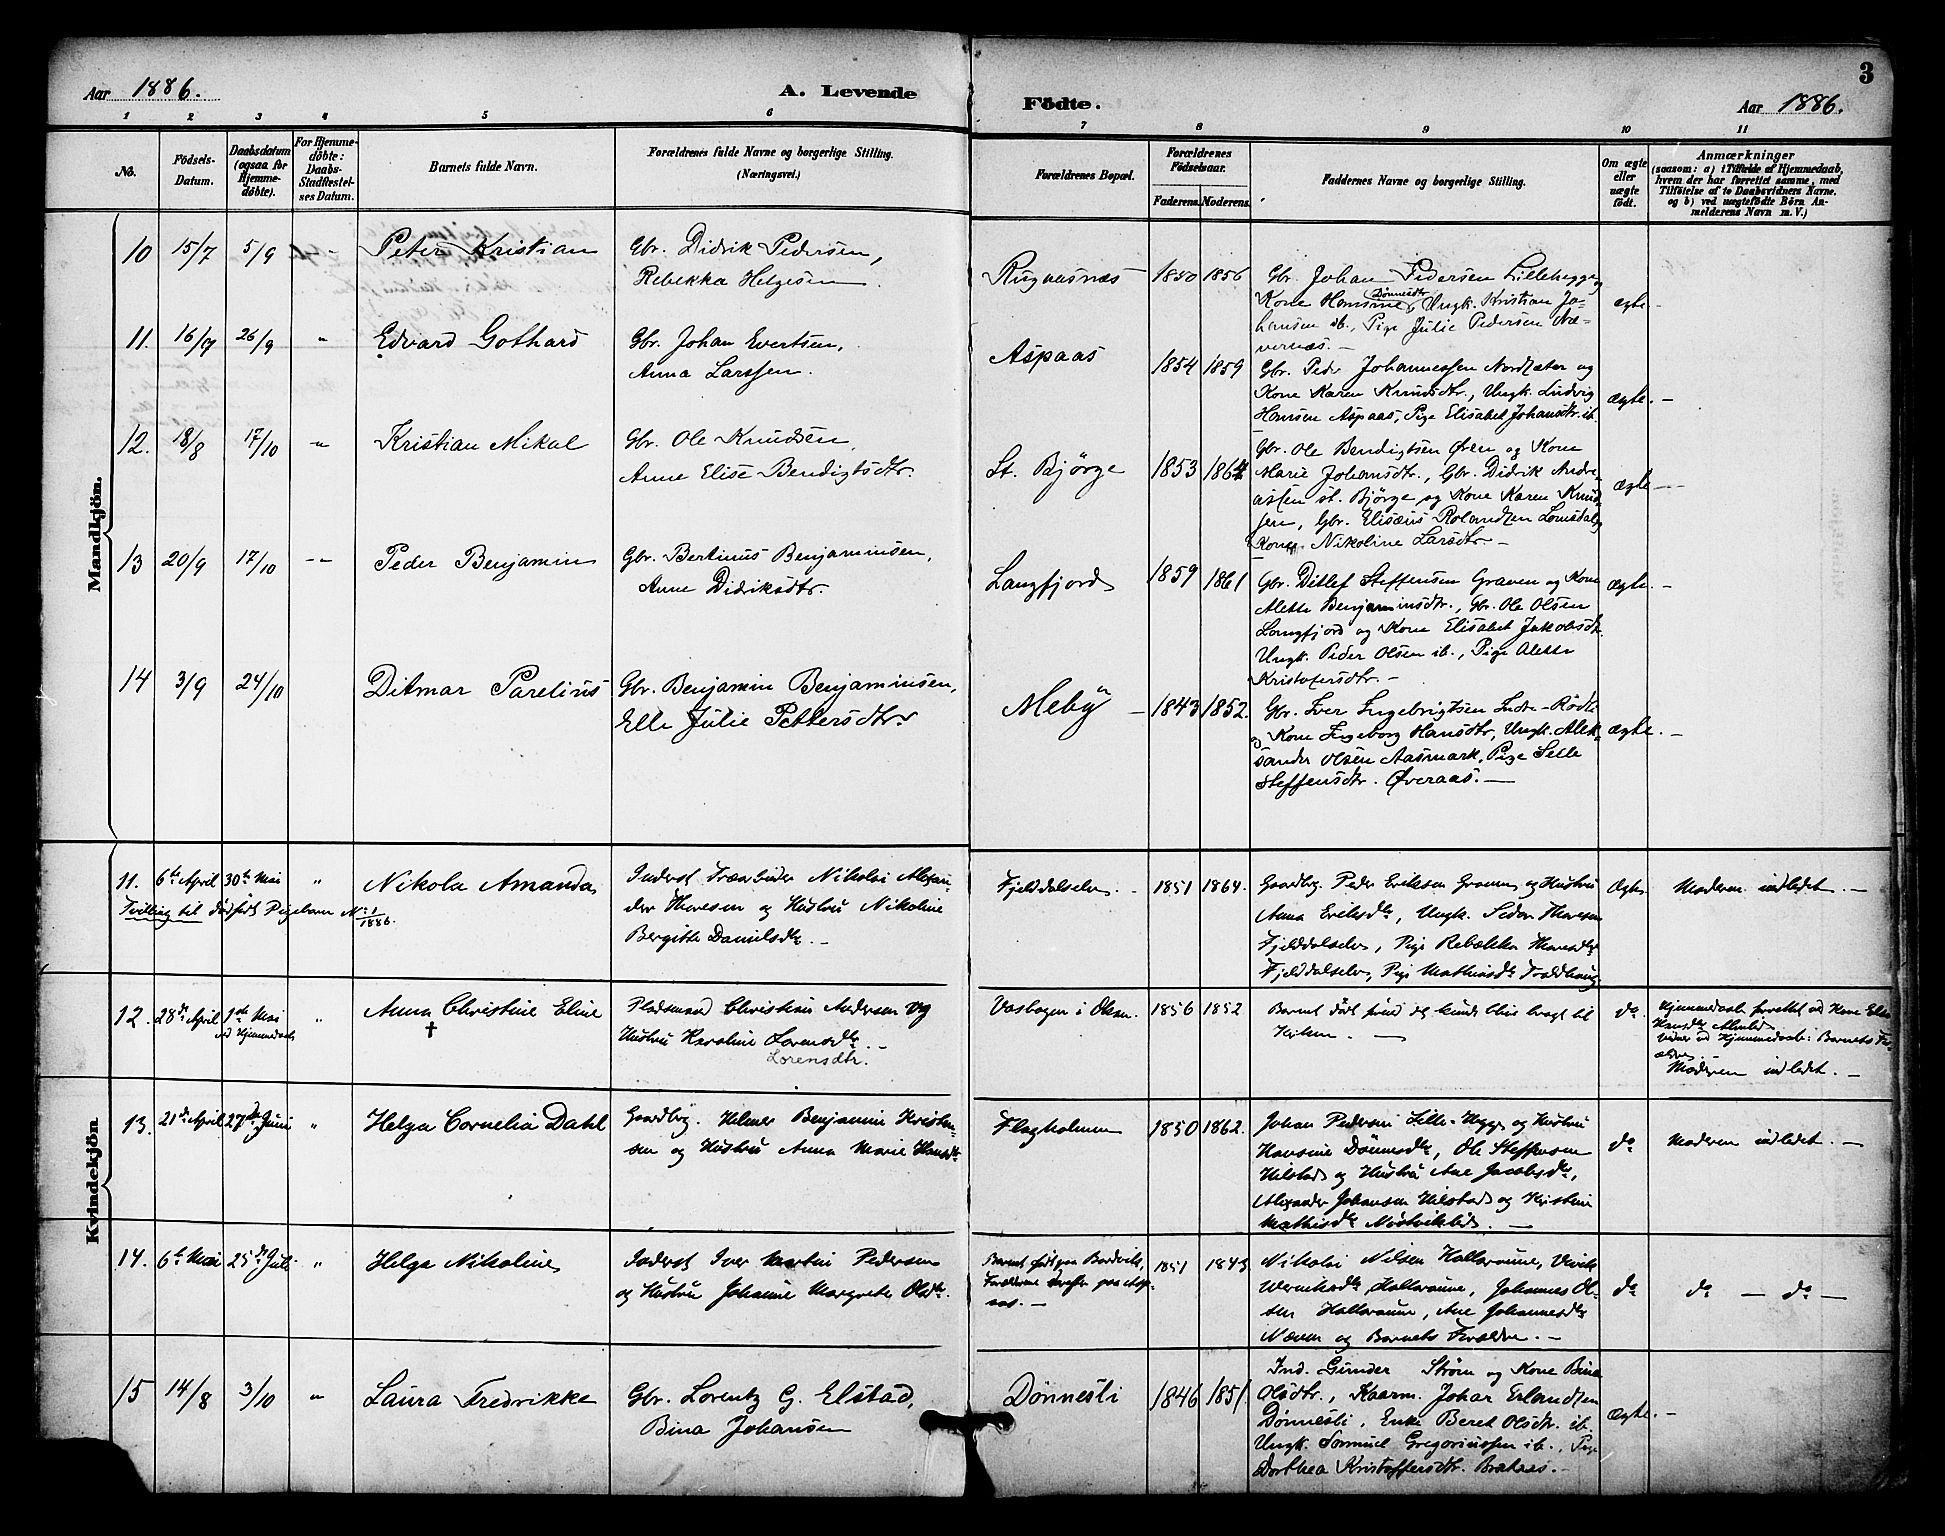 3
Aar 1886.
A. Levende
Födte.
Aar 1886.
1 2 3 4 5 6 7 8 9 10 11
No.
Födsels-
Datum.
Daabsdatum
(ogsaa for
Hjemme-
døbte).
For Hjemme-
døbte:
Daabs-
Stadfæstel-
ses Datum.
Barnets fulde Navn.
Forældrenes fulde Navne og borgerlige Stilling.
(Næringsvei.)
Forældrenes Bopæl.
Forældrenes
Födselsaar.
Faderens. Moderens.
Faddernes Navne og borgerlige Stilling.
Om ægte
eller
uægte
födt.
Anmærkninger
(saasom: a) i Tilfælde af Hjemmedaab,
hvem der har forrettet samme, med
Tilföielse af to Daabsvidners Navne,
og b) ved uægtefödte Börn An-
melderens Navn m. V.)
Mandkjön.
10 15/7 5/9 Peter Kristian
Gbr. Didrik Pedersen,
Rebekka Helgesen.
Rugaasnæs 1850 1856
Gbr. Johan Pedersen Lillehegge og
Kone Hansine Dønnesdtr, Ungk. Kristian Jo-
hansen ib., Pige Julie Pedersen Næ-
vernæs. -
ægte -
11. 16/7 26/9 " Edvard Gothard
Gbr. Johan Evertsen,
Anna Larssen.
Aspaas 1854 1859
Gbr. Peder Johannessen Nordsæter og
Kone Karen Knudsdtr., Ungk. Ludvig
Hansen Aspaas, Pige Elisabet Johansdtr. ib.
ægte. -
12. 18/8 17/10 " Kristian Mikal
Gbr. Ole Knudsen,
Anne Elise Bendigtsdtr.
St. Bjørge 1853 1864
Gbr. Ole Bendigtsen Øren og Kone
Marie Johansdtr., Gbr. Didrik Andre-
assen st. Bjørge og Kone Karen Knud-
sen, Gbr. Elisæus Rolandsen Lomsdal og
Kone Nikoline Larsdtr -
ægte -
13 20/9 17/10 " Peder Benjamin
Gbr. Bertinus Benjaminsen,
Anne Didriksdtr.
Langfjord 1859 1861
Gbr. Ditlef Steffensen Graven og Kone
Alette Benjaminsdtr., Gbr. Ole Olsen
Langfjord og Kone Elisabet Jakobsdtr.
Ungk. Peder Olsen ib., Pige Alette
Kristofersdtr. -
ægte. -
14 3/9 24/10 Ditmar Parelius
Gbr. Benjamin Benjaminsen,
Elle Julie Pettersdtr.
Meby - 1843 1852.
Gbr. Iver Ingebrigtsen Indre-Røde
og Kone Ingeborg Hansdtr, Ungk. Alek-
sander Olsen Aasmark, Pige Selle
Steffensdtr. Øveraas. -
ægte. -
Kvindekjön.
11. 6te April 30te Mai " Nikola Amanda
Tvilling til dødfødt Pigebarn No 1/1886.
Inderst Træarbeider Nikolai Alexan-
der Thoresen og Hustru Nikoline
Bergitte Danielsdtr. -
Fjelddalselven. - 1851 1864.
Gaardbg. Peder Eriksen Graven og Hustru
Anna Eriksdtr, Ungk. Sedor Thoresen
Fjelddalselv, Pige Rebækka Thoresdtr
Fjelddalselv, Pige Mathiasdtr Troldhaug
Ægte Moderen indledet. -
12. 28de April 1ste Mai ved Hjemmedaab " Anna Christine Eline †
Pladsmand Christian Andersen og
Hustru Karoline Lorensdtr. -
Lorensdtr.
Vasbogen i Olsen. 1856 1852
Barnet døde førend det kunde blive bragt til
Kirken. -
do
Hjemmedaab forrettet ved Kone Elen
Hansdtr Almlid
Vidner ved Hjemmedaab: Barnets For-
ældre. -
Moderen indledet. -
13. 21de April 27de Juni " Helga Cornelia Dahl
Gaardbrg. Helmer Benjamin Kristen-
sen og Hustru Anna Marie Hansdtr
Flagholmen 1850 1862.
Johan Pedersen Lille-Hegge og Hustru
Hansine Dønnesdtr, Ole Steffensen
Hilstad og Hustru Ane Jacobsdtr,
Alexander Johansen Hilstad og Kristine
Mathisdtr Nordvikslid. -
do Moderen indledet. -
14. 6te Mai 25de Juli " Helga Nikoline
Inderst Iver Martin Pedersen
og Hustru Johanne Margrete Olsdtr.
Barnet født paa Bordvik,
Forældrene straffer paa Asp-
aas. -
1851 1843
Nikolai Nilsen Hallaraune, Ulrik
Wernersdtr Hallaraune, Johannes Ol-
sen Hallaraune, Ane Johannesdtr
Næveren og Barnets Forældre. -
do do - do -
15 14/8 3/10 " Laura Fredrikke
Gbr. Lorentz G. Elstad,
Bina Johansen
Dønnesli 1846 1851.
Ind. Gunder Strøm og Kone Bina
Olsdtr., Kaarm. Johan Erlandsen
Dønnesli, Enke Beret Olsdtr. ib.
Ungk. Samuel Gregoriussen ib., Pige
Dorthea Kristoffersdtr. Brataas. -
ægte. -